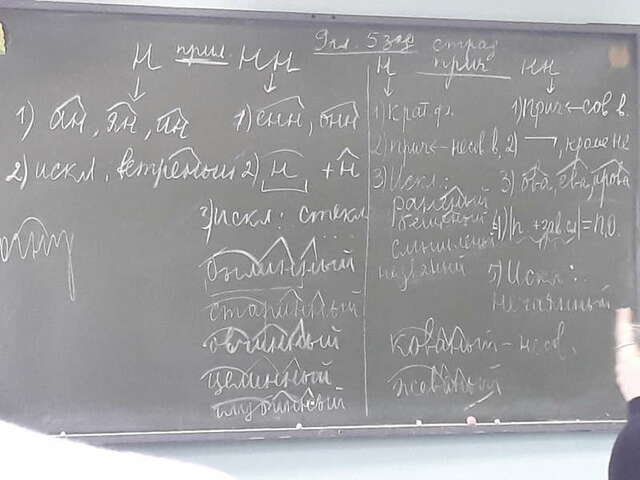 9 гл. 5 зад
Н прил. НН
1) ан, ян, ин 1) енн, онн
2) искл. ветреный 2) н + н
3) искл: стекл
былинный
старинный
овчинный
целинный
глубинный
страд
Н прич НН
1) Крат.ф. 1) прич ← сов в.
2) прич ← несов в, 2) , кроме не
3) Искл.: 3) ова, ева, ирова
раненый
бешеный 4) п. + зав.сл = П.О.
смышленый
названый 5) Искл:
нечаянный
кованый – несов.
жеваный